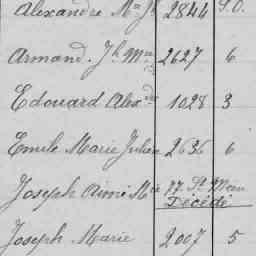 Alexandre M.ie J.h 2844 S.O.
Armand. J.h M.ie 2627 6
Edouard Alex.dre 1028 3
Emile Marie Julien 2636 6
Joseph Aimé M.ie 77 St Méen
Décédé
Joseph. Marie 2007 5